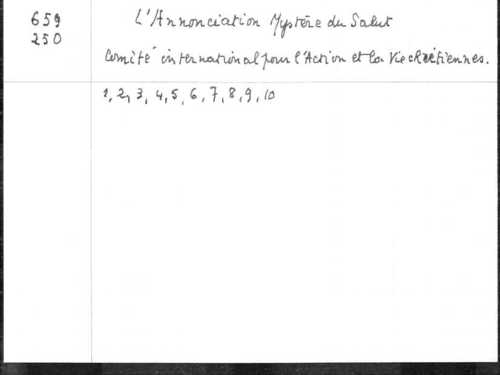 659
250
L'Annonciation Mystère du Salut
Comité international pour l'Action et la Vie chrétiennes.
1, 2, 3, 4, 5, 6, 7, 8, 9, 10